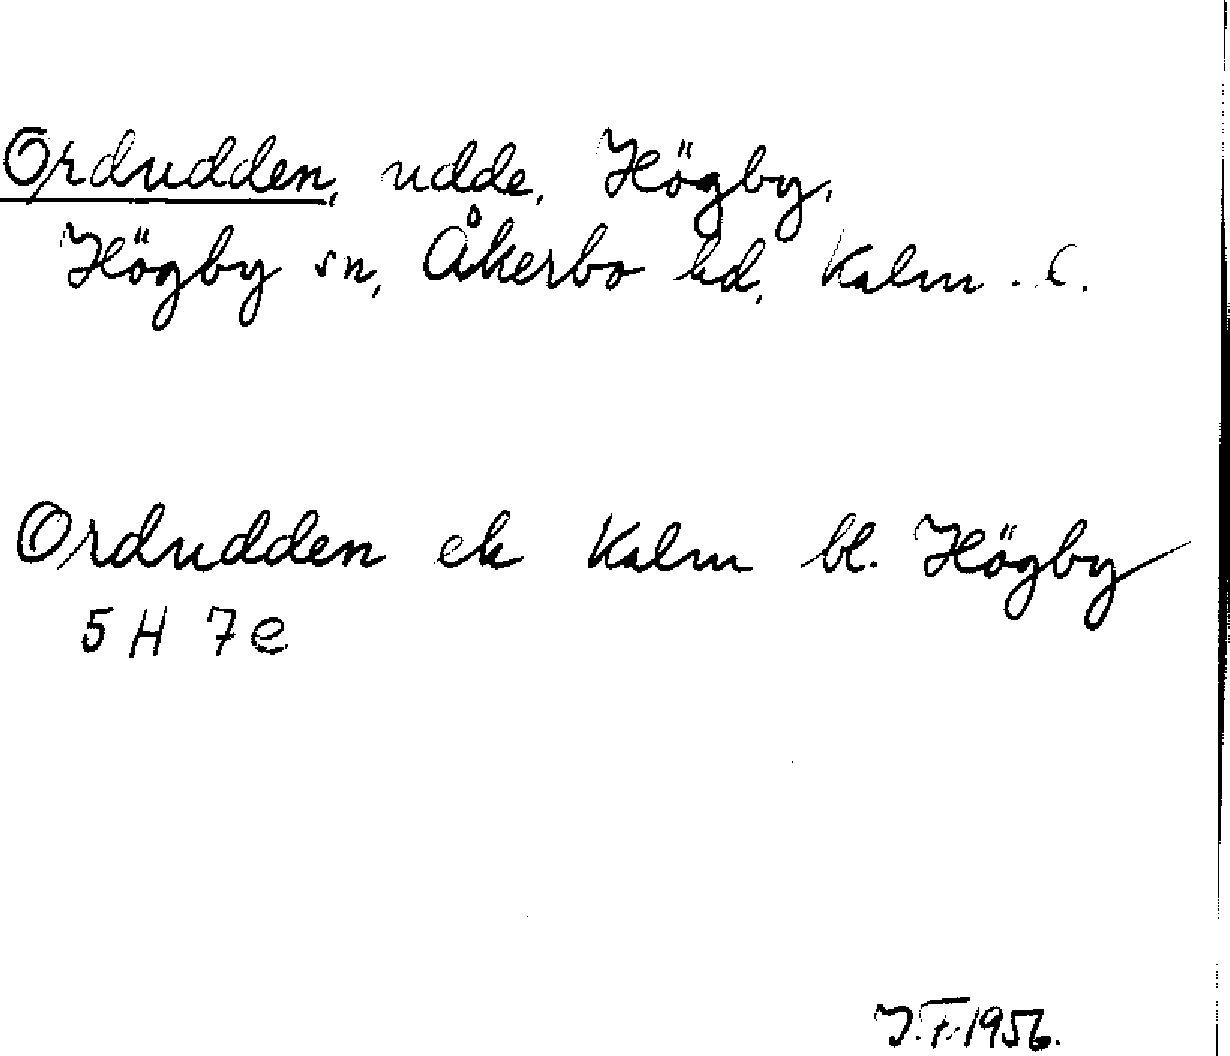 Ordudden, udde, Högby,
Högby sn, Åkerbo hd, Kalm. l.
Ordudden ek Kalm bl. Högby
5 H 7e
J.F. 1956.